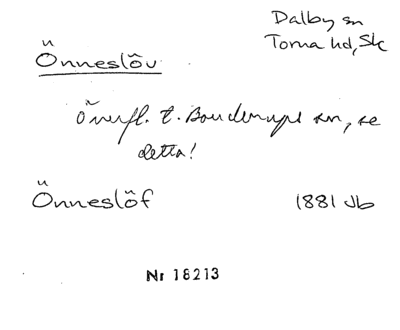 Dalby sn
Torna hd, Sk
Önneslöv
Överfl. t. Bonderups sn, se
detta!
Önneslöf 1881 Jb
Nr 18213